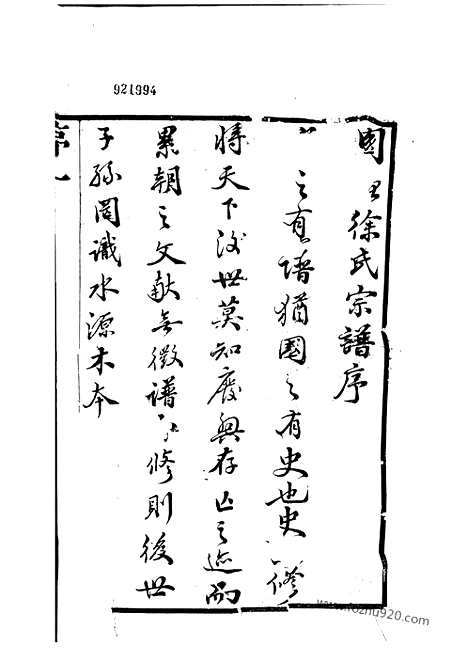 921994
國 徐氏宗譜序
之有譜猶國之有史也史 修
時天下後世莫知廢興存亡之迹而
累朝之文獻無徵譜 修則後世
子孫罔識水源木本
序一
www.fozhu920.com